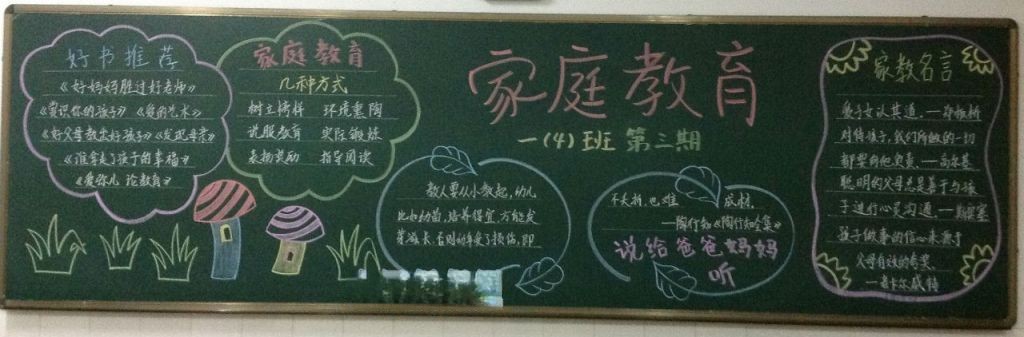 好书推荐
《好妈妈胜过好老师》
《赏识你的孩子》《爱的艺术》
《好父母教出好孩子》《发现母亲》
《谁拿走了孩子的幸福》
《爱弥儿 论教育》
家庭教育
几种方式
树立榜样 环境熏陶
说服教育 实际锻炼
表扬奖励 指导阅读
家庭教育
一(4)班 第三期
教人要从小教起,幼儿
比如幼苗,培养得宜,方能发
芽滋长,否则幼年受了损伤,即
不夭折,也难 成材。
—陶行知《陶行知全集》
说给爸爸妈妈
听
家教名言
爱子女以其道。—郑板桥
对待孩子,我们所做的一切
都要向他负责。—高尔基
聪明的父母总是善于与孩
子进行心灵沟通。—斯宾塞
孩子做事的信心来源于
父母有效的夸奖。
—老卡尔威特